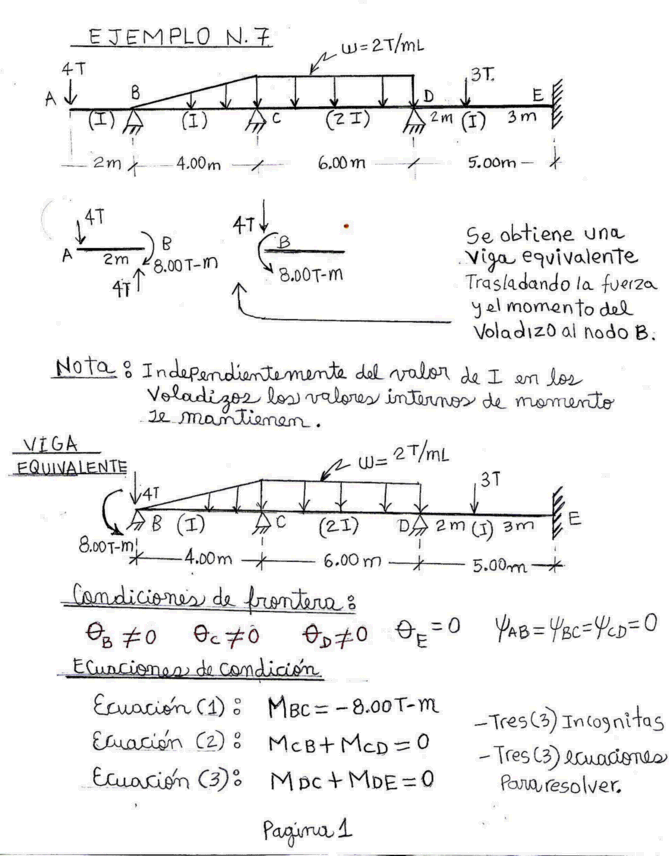 EJEMPLO N.7
ω=2T/mL
4T
3T.
A
B
C
D
E
(I)
(I)
(2I)
2m
(I)
3m
2m
4.00m
6.00m
5.00m
4T
A
2m
B
8.00T-m
4T
4T
B
8.00T-m
Se obtiene una
viga equivalente
Trasladando la fuerza
y el momento del
Voladizo al nodo B.
Nota: Independientemente del valor de I en los
Voladizos los valores internos de momento
se mantienen.
VIGA
EQUIVALENTE
ω=2T/mL
4T
3T
B
(I)
C
(2I)
D
2m
(I)
3m
E
8.00T-m
4.00m
6.00m
5.00m
Condiciones de frontera:
θB≠0 θC≠0 θD≠0 θE=0 ψAB=ψBC=ψCD=0
Ecuaciones de condición
Ecuación (1): MBC=-8.00T-m
Ecuación (2): MCB+MCD=0
Ecuación (3): MDC+MDE=0
-Tres(3) Incognitas
-Tres(3) ecuaciones
Para resolver.
Pagina 1